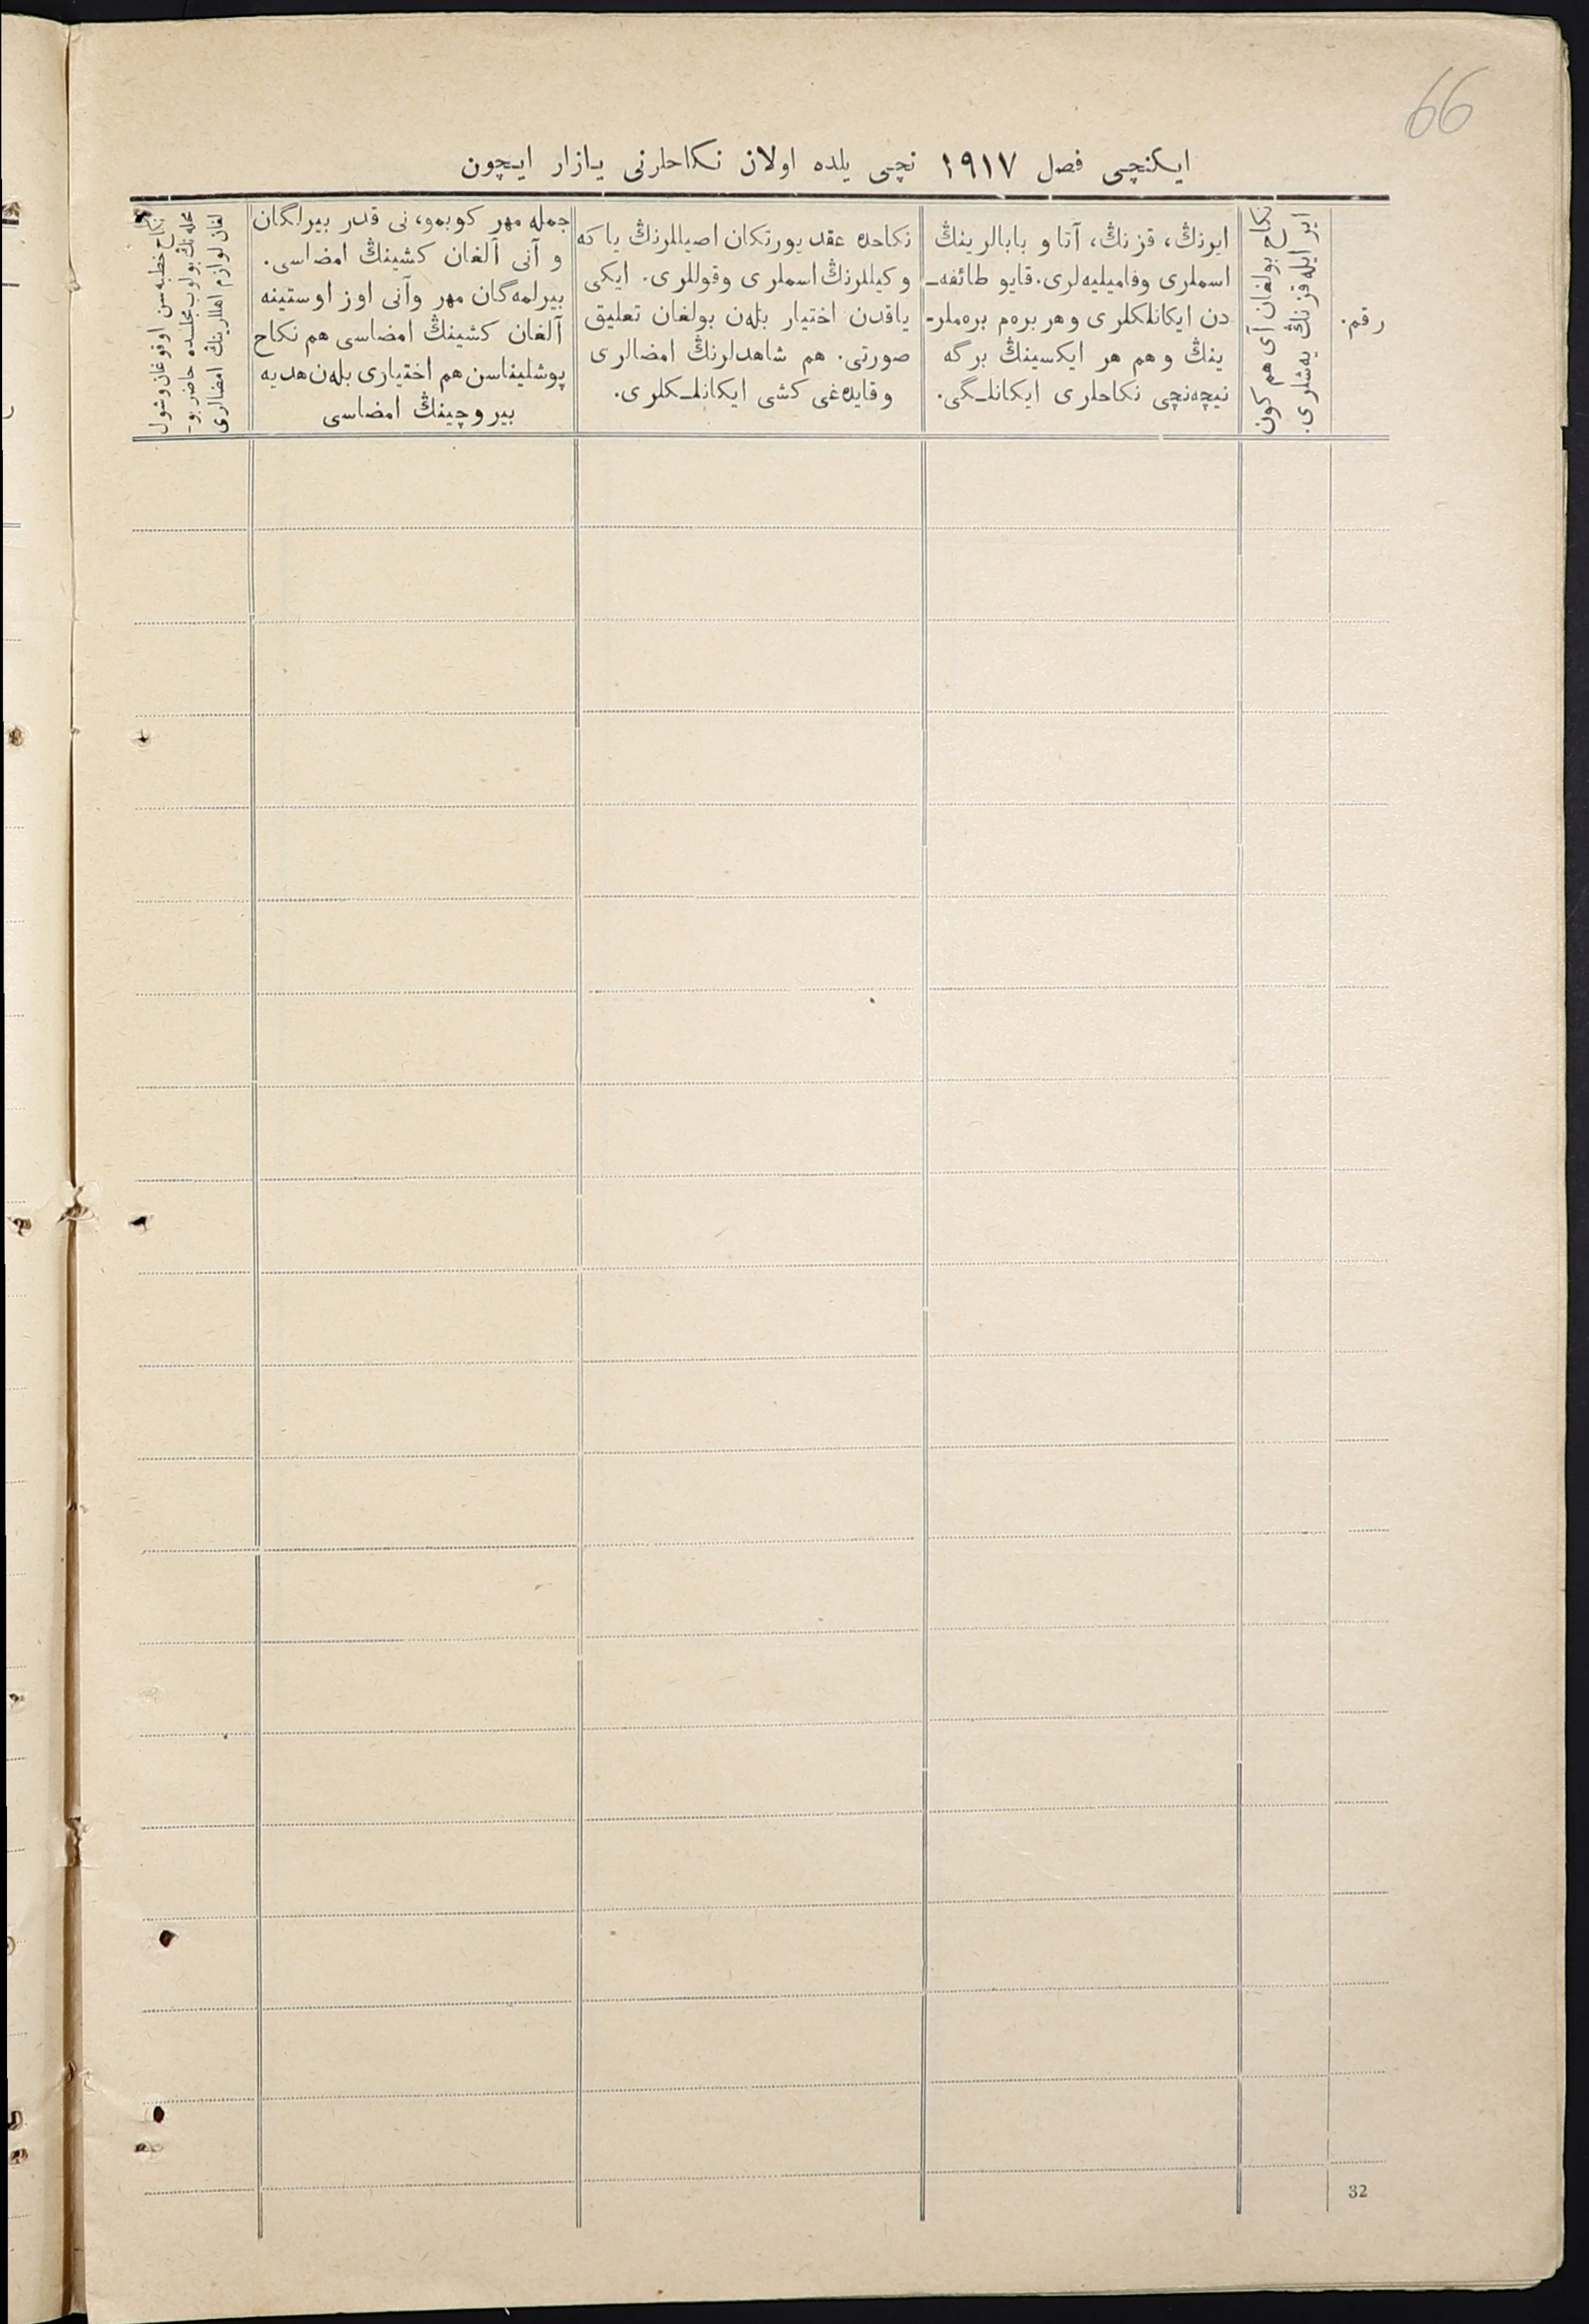 66
ایکنچی فصل ۱۹۱۷ نچی یلده اولان نکاحلرنی یازار ایچون
رقم.
نکاح بولغان آی هم کون
ایر ایله قزنڭ یه‌شلری.
ایرنڭ، قزنڭ، آتا و بابالرینڭ
اسملری وفامیلیه‌لری. قایو طائفه‌ـ
دن ایکانلکلری و هر بره‌م بره‌ملر-
ینڭ و هم هر ایکسینڭ برگه
نیچه‌نچی نکاحلری ایکانلـگی.
نکاحده عقد یورتکان اصیللرنڭ یا که
وکیللرنڭ اسملری وقوللری. ایکی
یاقدن اختیار بله‌ن بولغان تعلیق
صورتی. هم شاهدلرنڭ امضالری
وقایده‌غی کشی ایکانلـکلری.
جمله مهر کوبمو، نی قدر بیرلگان
و آنی آلغان کشینڭ امضاسی.
بیرلمه‌گان مهر وآنی اوز اوستینه
آلغان کشینڭ امضاسی هم نکاح
پوشلیناسن هم اختیاری بله‌ن هدیه
بیروچینڭ امضاسی
نکاح خطبه‌سن اوقوغان وشول
محله‌نڭ بولوب مجلسده حاضر بو-
لغان لوازم اهللرینڭ امضالری
32